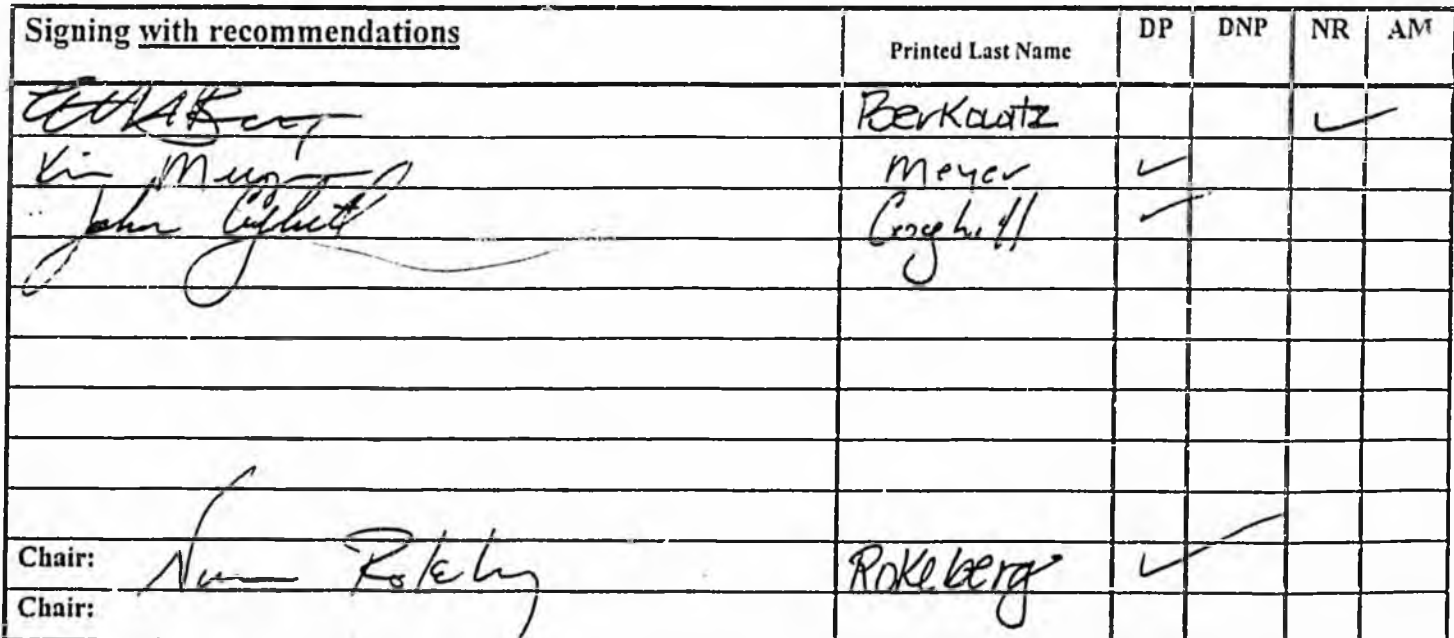 Signing with recommendations Printed Last Name DP DNP NR AM
Berkowitz ✓
Kim Meyer Meyer ✓
John Coghill Coghill ✓
Chair: Norman Rokeberg Rokeberg ✓
Chair: